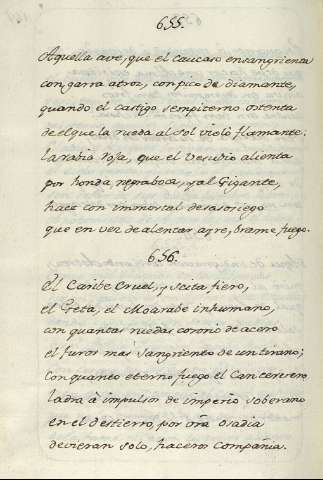 655.
Aquella ave, que el caucaso ensangrienta
con garra atroz, con pico de diamante,
quando el castigo sempiterno ostenta
de el que la rueda al sol violò flamante:
la rabia roja, que el Vesubio alienta
por honda negra boca, y al Gigante,
hace con inmortal desasosiego
que en vez de alentar ayre, brame fuego.
656.
El Caribe Cruel, y scita fiero,
el Greta, el Moarabe inhumano,
con quantas ruedas coronò de acero
el furor mas sangriento de un tirano;
con quanto eterno fuego el Cancervero
ladra à impulsos de imperio soberano
en el destierro, por vr̃a osadia
devieran solo, haceros compañia.